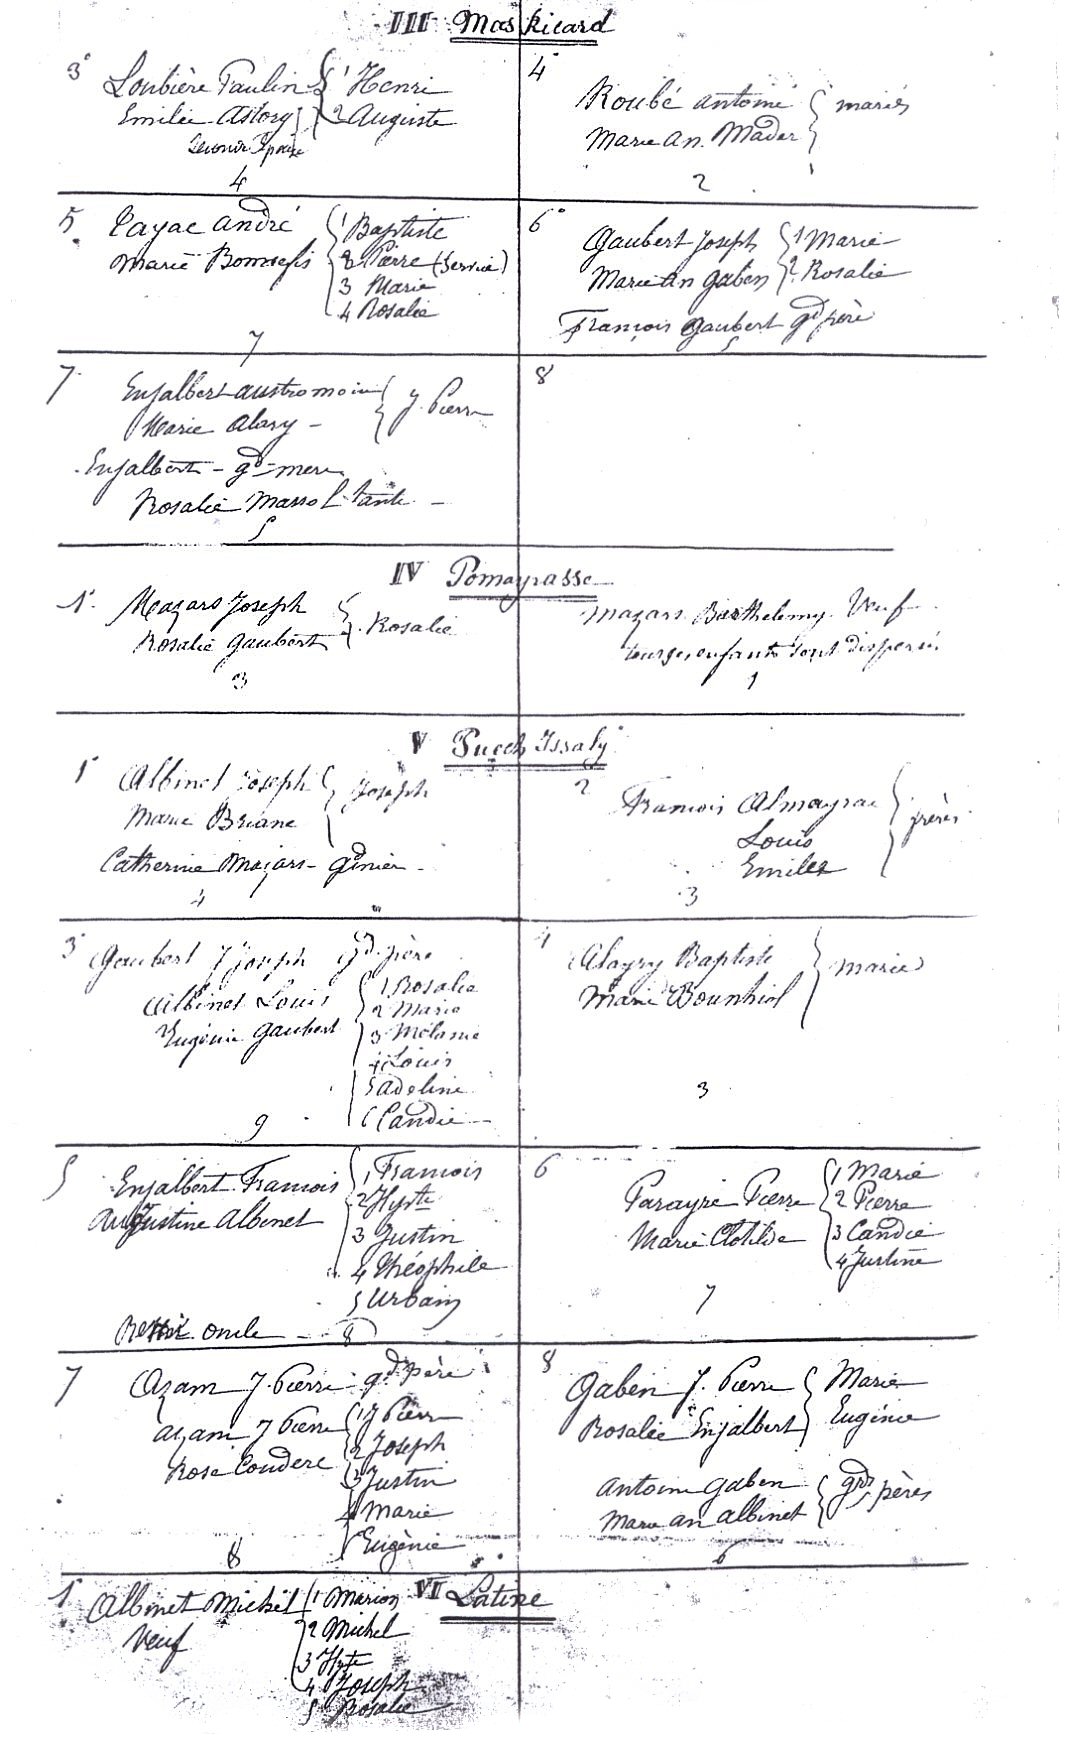 III Mas Ricard
3° Loubière Paulin 1 Henri
Emilie Astorg 2 Auguste
Seconde Epouse
4
4° Roubé antoine mariés
Marie an. Mader
2
5. Cayac andré 1 Baptiste
Marie Bonnefis 2 Pierre (Service)
3 Marie
4 Rosalie
7
6° Gaubert Joseph 1 Marie
Marie an gaben 2 Rosalie
François gaubert gd père
5
7 Enjalbert austromoine J. Pierre
Marie alary -
Enjalbert - gd = mere
Rosalie Massol tante -
5
8
IV Pomayrasse
1° Mazars Joseph Rosalie
Rosalie gaubert
3
Mazars Barthelemy Veuf
tous ses enfants sont dispersés
1
V Puech Issaly
1° Albinet Joseph Joseph
Marie Briane
Catherine Mazars - gd mère -
4
2 François Almayrac frères
Louis
Emile
3
3° Gaubert J Joseph gd. père
Albinet Louis 1 Rosalie
Eugénie gaubert 2 Marie
3 Mélanie
4 Louis
5 adeline
6 Candie
9
4 Alayry Baptiste mariés
Marie Bounhiol
3
5 Enjalbert François 1 François
Augustine Albinet 2 Hyte
3 Justin
4 théophile
5 Urbain
oncle - 8
6 Parayre Pierre 1 Marie
Marie Clotilde 2 Pierre
3 Candie
4 Justine
7
7 Azam J. Pierre gd père
azam J Pierre 1 J Pierre
Rose Couderc 2 Joseph
3 Justin
4 Marie
Eugènie
8
8 Gaben J. Pierre Marie
Rosalie Enjalbert Eugénie
Antoine gaben gds pères
Marie an albinet
6
VI Latine
1° Albinet Michel 1 Marion
Veuf 2 Michel
3 Hyte
4 Joseph
5 Rosalie